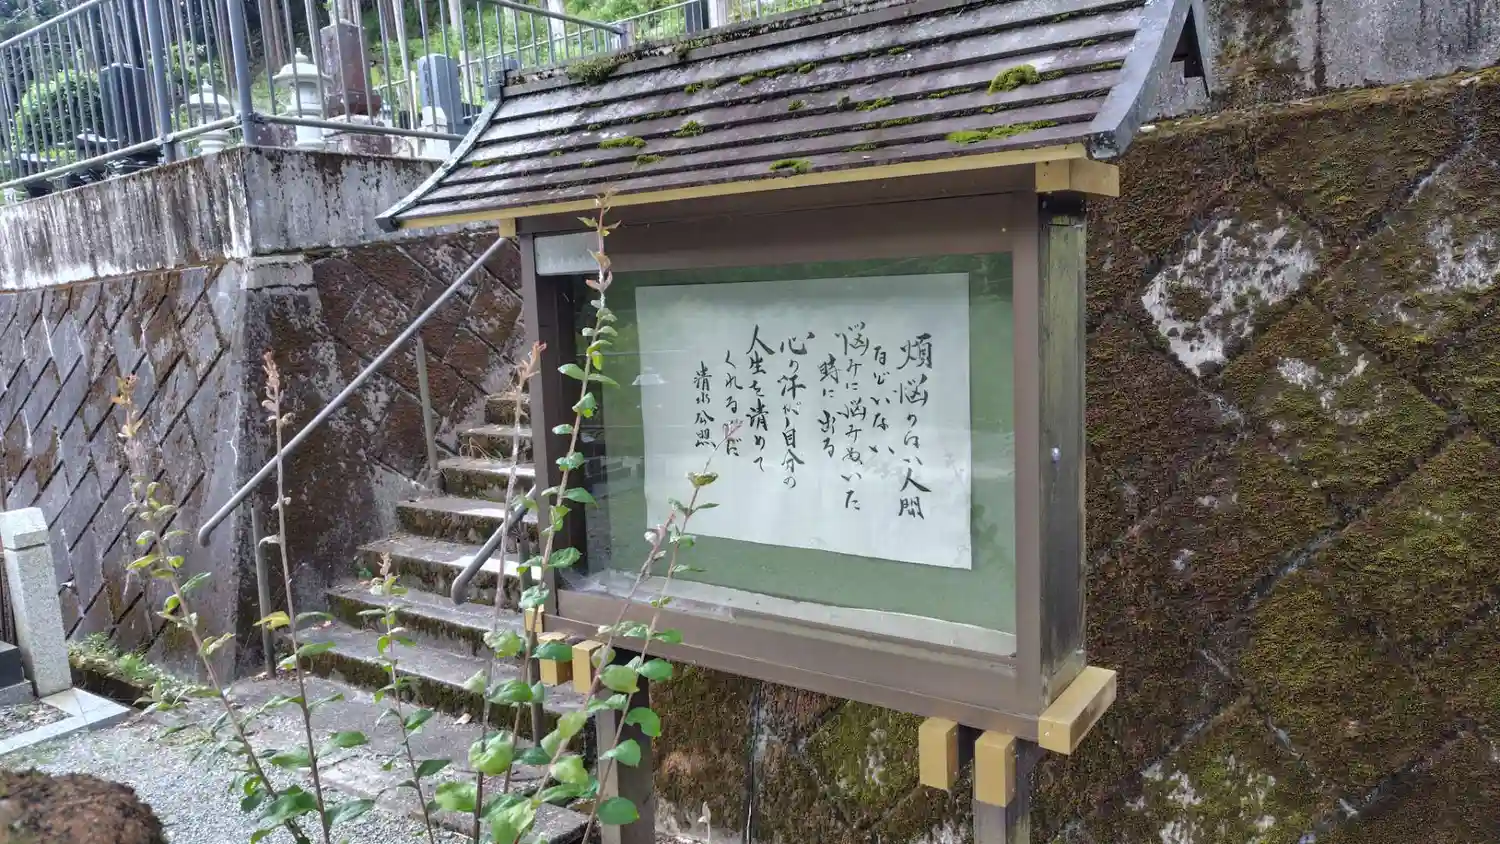 煩悩のない人間
などいない
悩みに悩みぬいた
時に出る
心の汗が自分の
人生を清めて
くれるのだ
清水公照